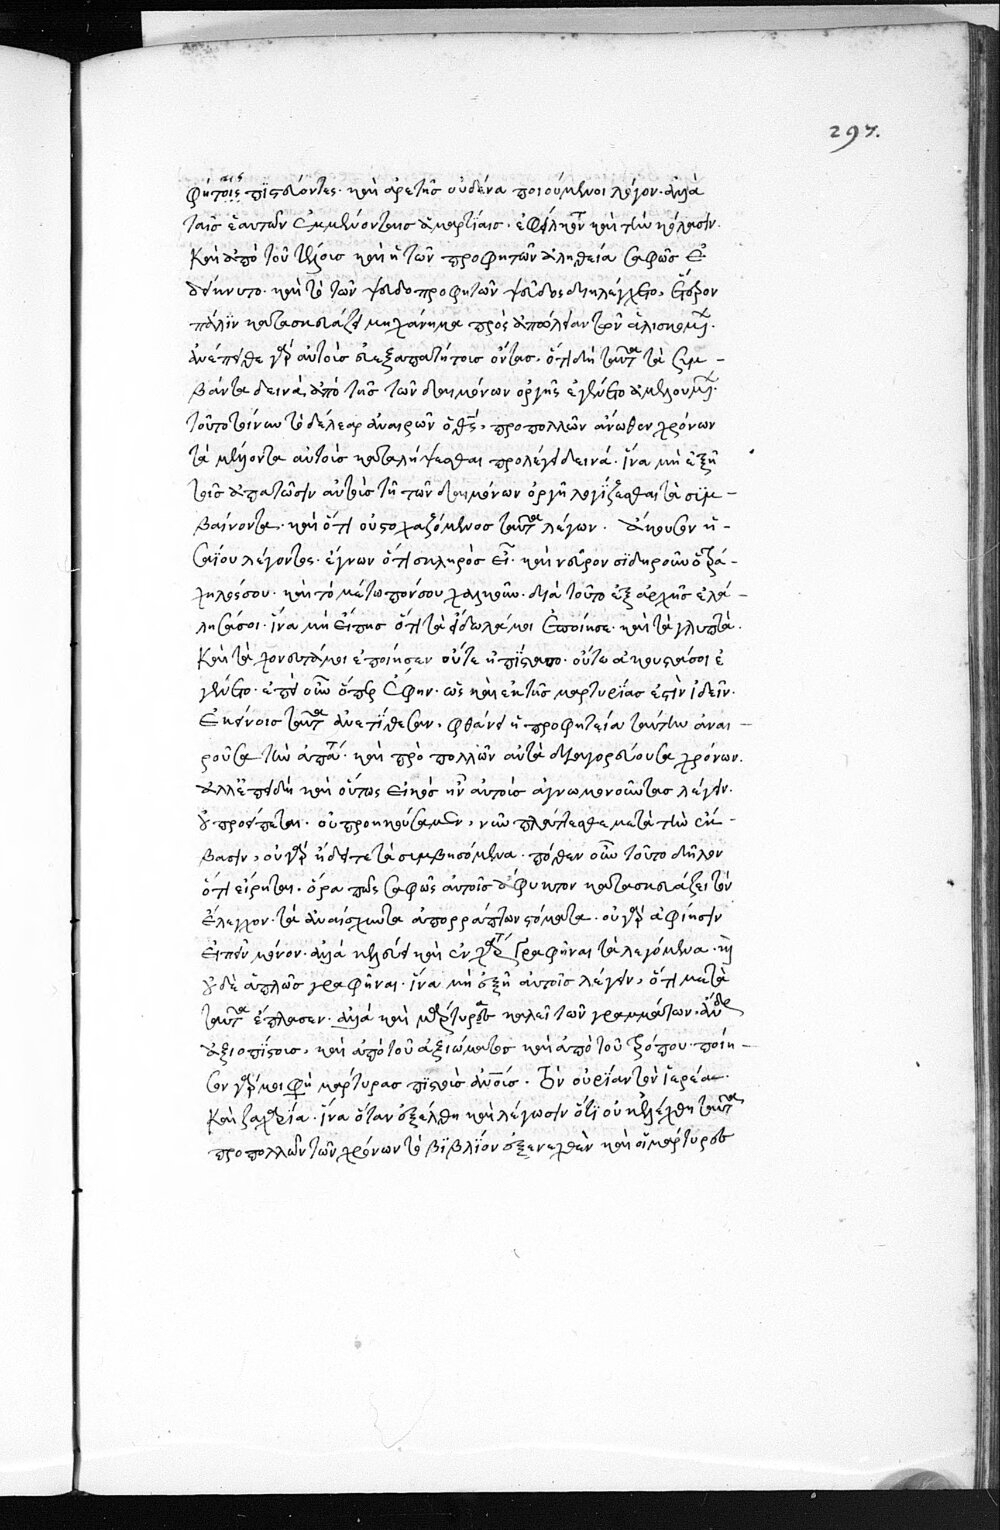 297.
φήταις πιστεύοντες. καὶ ἀρετῆς οὐδένα ποιούμενοι λόγον. ἀλλὰ
ταῖς ἑαυτῶν ἐμμένοντες ἁμαρτίαις. ἐφεῖλκον καὶ τὴν κόλασιν.
καὶ ἀπὸ τοῦ τέλους καὶ ἡ τῶν προφητῶν ἀλήθεια σαφῶς ἐ
δείκνυτο. καὶ τὸ τῶν ψευδοπροφητῶν ψεῦδος διηλέγχετο, ἕτερον
πάλιν κατασκευάζει μηχάνημα πρὸς ἀπώλειαν τῶν ἁλισκομ.
ἀνέπειθε γὰρ αὐτοὺς εὐεξαπατήτους ὄντας. ὅτι δὴ ταῦτα τὰ συμ-
βάντα δεινὰ, ἀπὸ τῆς τῶν δαιμόνων ὀργῆς ἐγένετο ἀμελουμ.
τοῦτο τοίνυν τὸ δέλεαρ ἀναιρῶν ὁ θς, πρὸ πολλῶν ἄνωθεν χρόνων
τὰ μέλλοντα αὐτοὺς καταλήψεσθαι προλέγει δεινά. ἵνα μὴ ἐξῇ
τοῖς ἀπατῶσιν αὐτοὺς τῇ τῶν δαιμόνων ὀργῇ λογίζεσθαι τὰ συμ-
βαίνοντα. καὶ ὅτι οὐ στοχαζόμενος ταῦτα λέγων. ἄκουσον ἠ-
σαΐου λέγοντος. ἔγνων ὅτι σκληρὸς εἶ. καὶ νεῦρον σιδηροῦν ὁ τρά-
χηλός σου. καὶ τὸ μέτωπόν σου χαλκοῦν. διὰ τοῦτο ἐξ ἀρχῆς ἐλά-
λησά σοι. ἵνα μὴ εἴπῃς ὅτι τὰ εἴδωλά μοι ἐποίησε. καὶ τὰ γλυπτὰ.
καὶ τὰ χωνευτά μοι ἐποίησεν οὔτε ἠπίστασο. οὔτε ἀκουστά σοι ἐ
γένετο. ἐπεὶ οὖν ὅπερ ἔφην. ὡς καὶ ἐκ τῆς μαρτυρίας ἐστὶν ἰδεῖν.
ἐκείνοις ταῦτα ἀνετίθεσαν, φθάνει ἡ προφητεία ταύτην ἀναι-
ροῦσα τὴν ἀπάτ. καὶ πρὸ πολλῶν αὐτὰ διαγορεύουσα χρόνων.
ἀλλ' ἐπειδὴ καὶ οὕτως εἰκὸς ἦν αὐτοὺς ἀγνωμονοῦντας λέγειν.
οὐ προείπεται. οὐ προηκούσαμεν, νῦν πλάττεσθε μετὰ τὴν ἔκ-
βασιν, οὐ γὰρ ᾔδειτε τὰ συμβησόμενα. πόθεν οὖν τοῦτο δῆλον
ὅτι εἴρηται. ὅρα πῶς σαφῶς αὐτοῖς ἄφυκτον κατασκευάζει τὸν
ἔλεγχον. τὰ ἀναίσχυντα ἀπορράπτων στόματα. οὐ γὰρ ἀφίησιν
εἰπεῖν μόνον. ἀλλὰ κελεύει καὶ ἐν χάρτῃ γραφῆναι τὰ λεγόμενα. καὶ
οὐδὲ ἁπλῶς γραφῆναι. ἵνα μὴ ἐξῇ αὐτοῖς λέγειν, ὅτι μετὰ
ταῦτα ἔπλασεν. ἀλλὰ καὶ μάρτυρας καλεῖ τῶν γραμμάτων. ἄνδρ
ἀξιοπίστους, καὶ ἀπὸ τοῦ ἀξιώματος καὶ ἀπὸ τοῦ τρόπου. ποίη-
σον γάρ μοι φη μάρτυρας πιστοὺς ἀνους. τὸν οὐρίαν τὸν ἱερέα.
καὶ ζαχαρία. ἵνα ὅταν ἐξέλθῃ καὶ λέγωσιν ὅτι οὐκ ἐλέχθη ταῦτα
πρὸ πολλῶν τῶν χρόνων τὸ βιβλίον ἐξενεχθὲν καὶ οἱ μάρτυρες